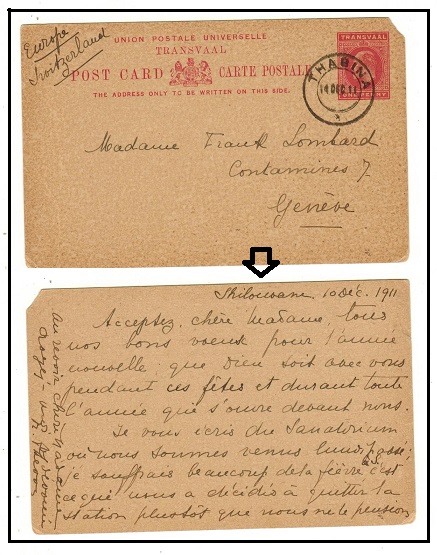 Europe
Switzerland
UNION POSTALE UNIVERSELLE
TRANSVAAL
POST CARD CARTE POSTALE
THE ADDRESS ONLY TO BE WRITTEN ON THIS SIDE.
THABINA
DEC 11
TRANSVAAL
ONE PENNY
Madame Frank Lombard
Contamines 7
Genève
Shilouvane 10 Déc. 1911
Acceptez, chère Madame, tous
nos bons voeux pour l'année
nouvelle; que Dieu soit avec vous
pendant ces fêtes et durant toute
l'année qui s'ouvre devant nous.
Je vous écris du Sanatorium
où nous sommes venus lundi passé;
je souffrais beaucoup de la fièvre et c'est
ce qui nous a décidés à quitter la
station plustôt que nous ne le pensions
Au revoir chère Madame